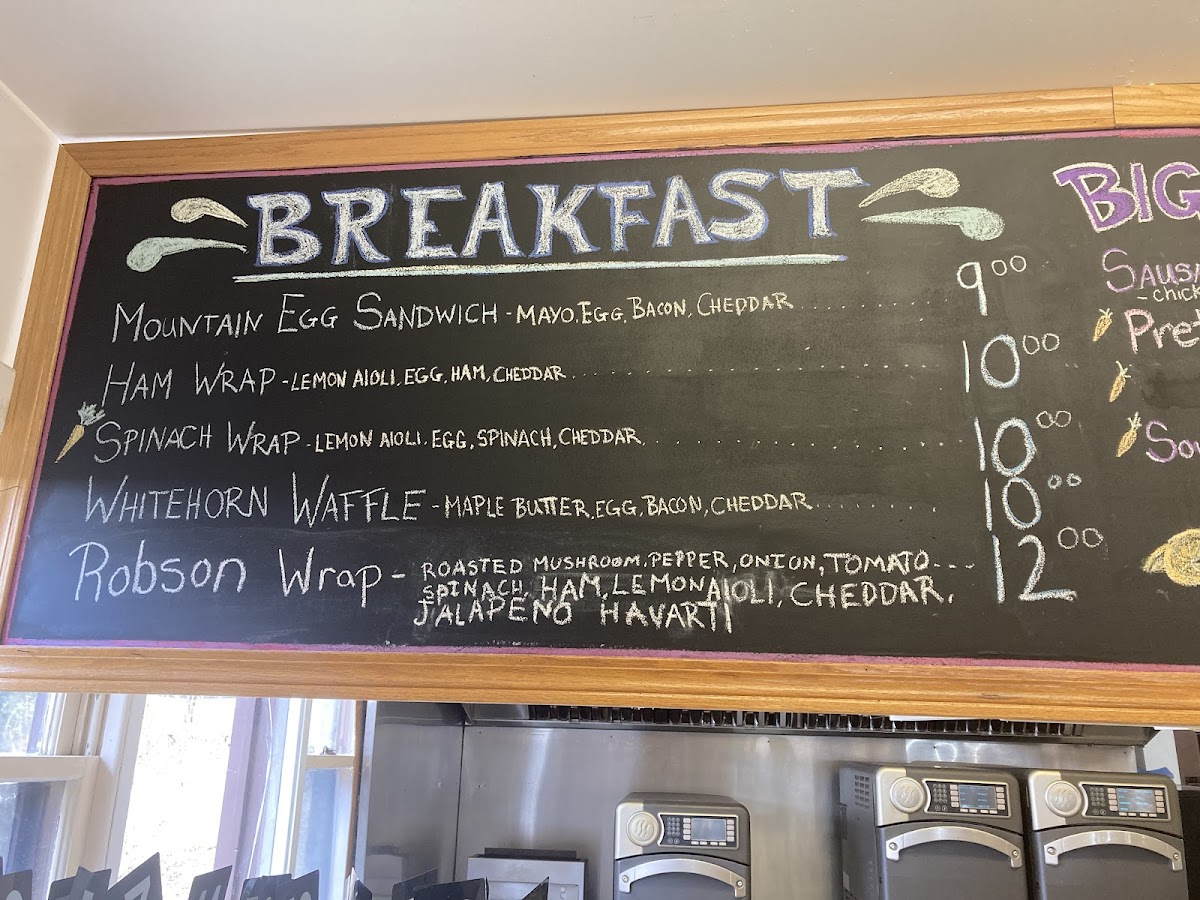 BREAKFAST
MOUNTAIN EGG SANDWICH - MAYO, EGG, BACON, CHEDDAR .......... 9 00
HAM WRAP - LEMON AIOLI, EGG, HAM, CHEDDAR .......... 10 00
SPINACH WRAP - LEMON AIOLI, EGG, SPINACH, CHEDDAR .......... 10 00
WHITEHORN WAFFLE - MAPLE BUTTER, EGG, BACON, CHEDDAR .......... 10 00
Robson Wrap - ROASTED MUSHROOM, PEPPER, ONION, TOMATO --- 12 00
SPINACH, HAM, LEMON AIOLI, CHEDDAR,
JALAPENO HAVARTI
BIG